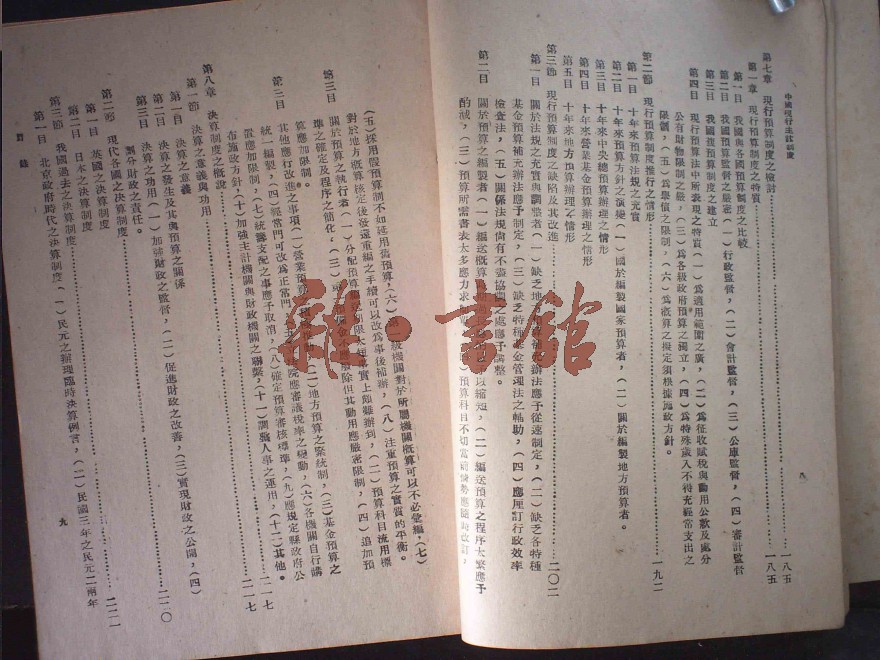 中國現行主計制度
八
第七章 現行預算制度之檢討……一八五
第一節 現行預算制度之特質……一八五
第一目 我國與各國預算制度之比較
第二目 我國預算監督之嚴密(一)行政監督,(二)會計監督,(三)公庫監督,(四)審計監督
第三目 我國複預算制度之建立
第四目 現行預算法中所表現之特質(一)爲適用範圍之廣,(二)爲征收賦稅與動用公款及處分
公有財物限制之嚴,(三)爲各級政府預算之獨立,(四)爲特殊歲入不得充經常支出之
限制,(五)爲舉債之限制,(六)爲概算之擬定須根據施政方針。
第二節 現行預算制度推行之情形……一九二
第一目 十年來預算法規之充實
第二目 十年來預算方針之演變(一)國於編製國家預算者,(二)關於編製地方預算者。
第三目 十年來中央總預算辦理之情形
第四目 十年來營業基金預算辦理之情形
第五目 十年來地方預算辦理之情形
第三節 現行預算制度之缺陷及其改進……二〇二
第一目 關於法規之充實與調整者(一)缺乏地方預算補充辦法應予從速制定,(二)缺乏各特種
基金預算補充辦法應予制定,(三)缺乏特種基金管理法之輔助,(四)應厘訂行政效率
檢查法,(五)關係法規尙有不盡協調之處應予調整。
第二目 關於預算之編製者(一)編送概算以縮短,(二)編送預算之程序太繁應予
酌減,(三)預算所需書表太多應力求(四)預算科目不切當前情勢應隨時改訂,
(五)採用假預算制不如延用舊預算,(六)第一級機關對於所屬機關概算可以不必彙編,(七)
對於地方概算核定後發還重編之手續可以改爲事後補辦,(八)注重預算之實質的平衡。
第三目 關於預算之執行者(一)分配預算編送期限太短事實上頗難辦到,(二)預算科目流用標
準之確定及程序之簡化,(三)金不應廢除但其動用應嚴密限制,(四)追加預
算應加限制。
第三目 其他應行改進之事項(一)營業預算(二)地方預算之案統制,(三)基金預算之
統一編製,(四)經常門可改爲正常門,(五)院應審議稅率之變動,(六)各機關自行購
置應加限制,(七)統籌支配之事應予取消,(八)確定預算審核標準,(九)應規定縣政府公
布施政方針,(十)加強主計機關與財政機關之聯繫,(十一)調整人事之運用,(十二)其他。
第八章 決算制度之概說……二一七
第一節 決算之意義與功用……二一七
第一目 決算之意義
第二目 決算之發生及其與預算之關係
第三目 決算之功用(一)加強財政之監督,(二)促進財政之改善,(三)實現財政之公開,(四)
劃分財政之責任。
第二節 現代各國之決算制度……二二〇
第一目 英國之決算制度
第二目 日本之決算制度
第三節 我國過去之決算制度……二二一
第一目 北京政府時代之決算制度(一)民元之辦理臨時決算例言,(二)民國三年之民元二兩年
目錄
九
雜·書館